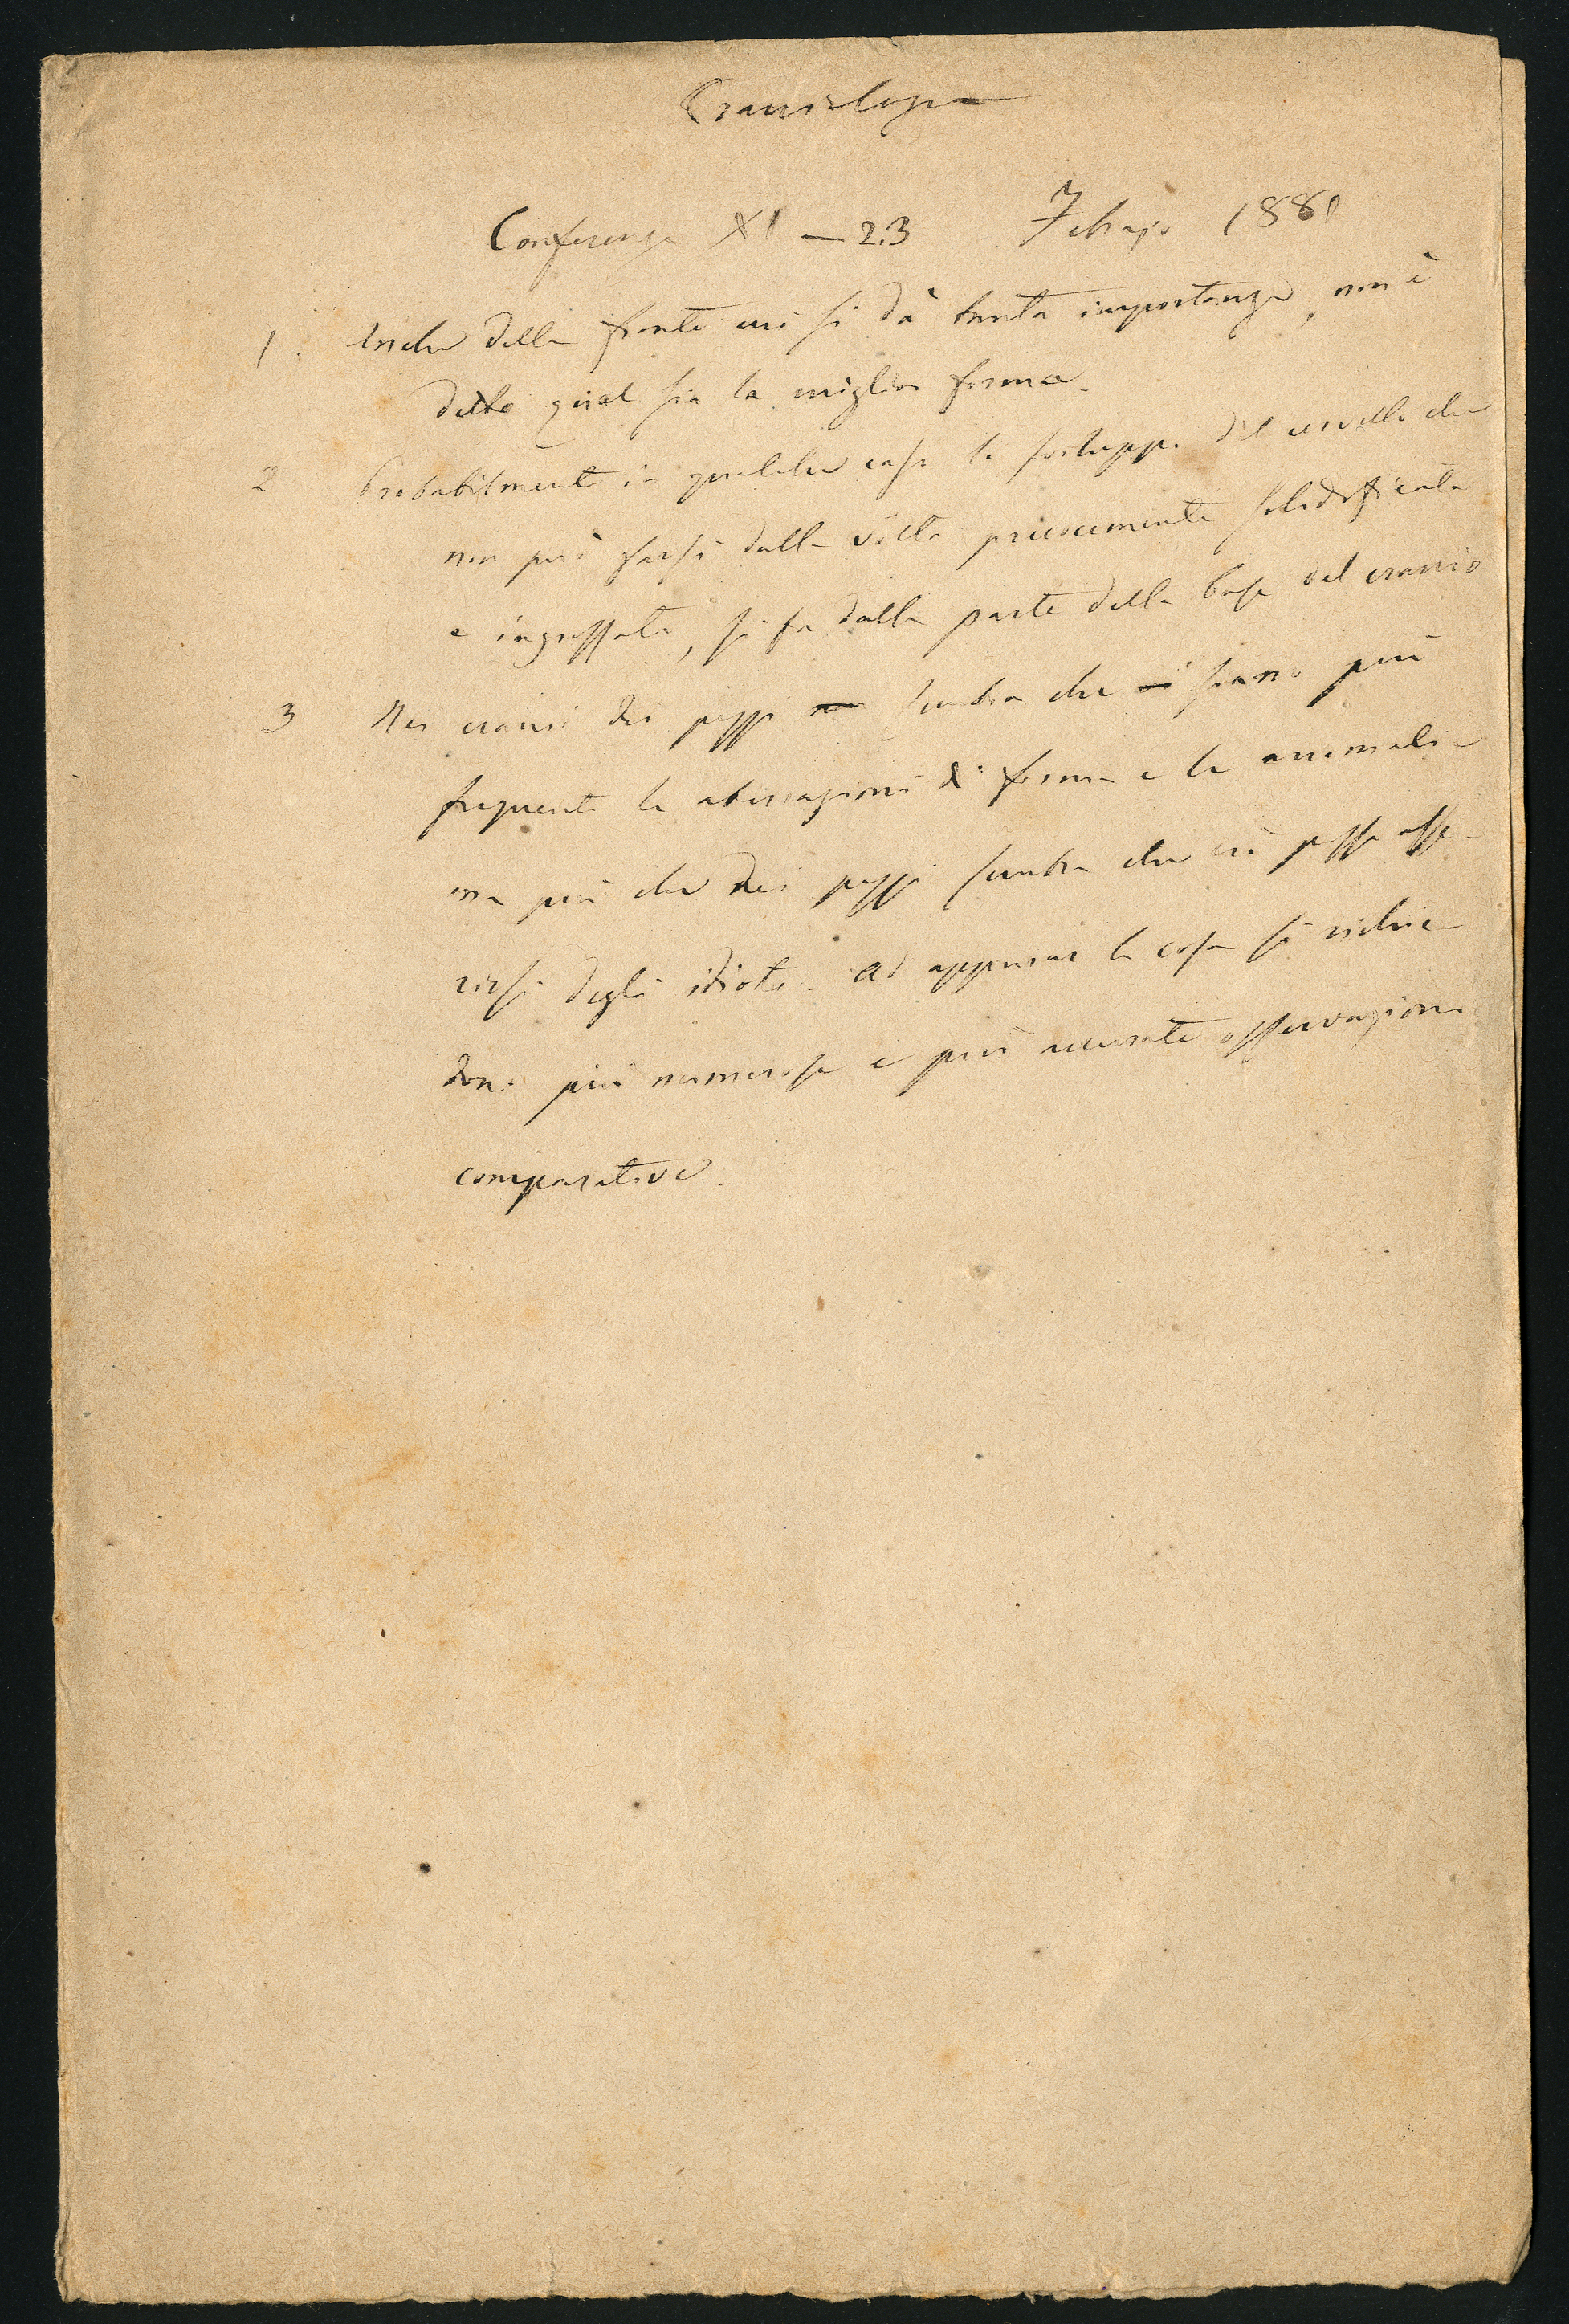 Craniologia
Conferenza XI — 23 Febrajo 1881
1. Anche della fronte cui si dà tanta importanza, non è
detto qual sia la miglior forma.
2 Probabilmente in qualche caso lo sviluppo del cervello che
non può farsi dalla vôlta precocemente solidificata
e ingrossata, si fa dalla parte della base del cranio
3 Nei crani dei pazzi sembra che siano più
frequenti le aberrazioni di forma e le anomalie
ma più che dei pazzi sembra che ciò possa asse-
rirsi degli idioti. Ad appurar la cosa si richie-
dono più numerose e più accurate osservazioni
comparative.